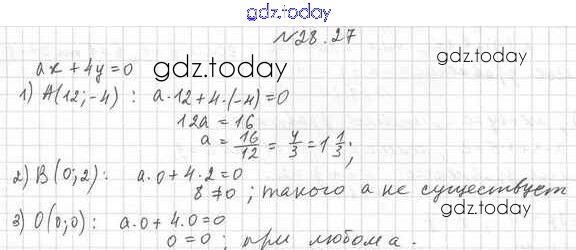 gdz.today
№28.27
ax + 4y = 0
gdz.today
gdz.today
1) A(12; -4) : a·12 + 4·(-4) = 0
12a = 16
a = 16/12 = 4/3 = 1 1/3;
2) B(0; 2) : a·0 + 4·2 = 0
8 ≠ 0 ; такого а не существует
gdz.today
3) O(0; 0) : a·0 + 4·0 = 0
0 = 0 ; при любом а.